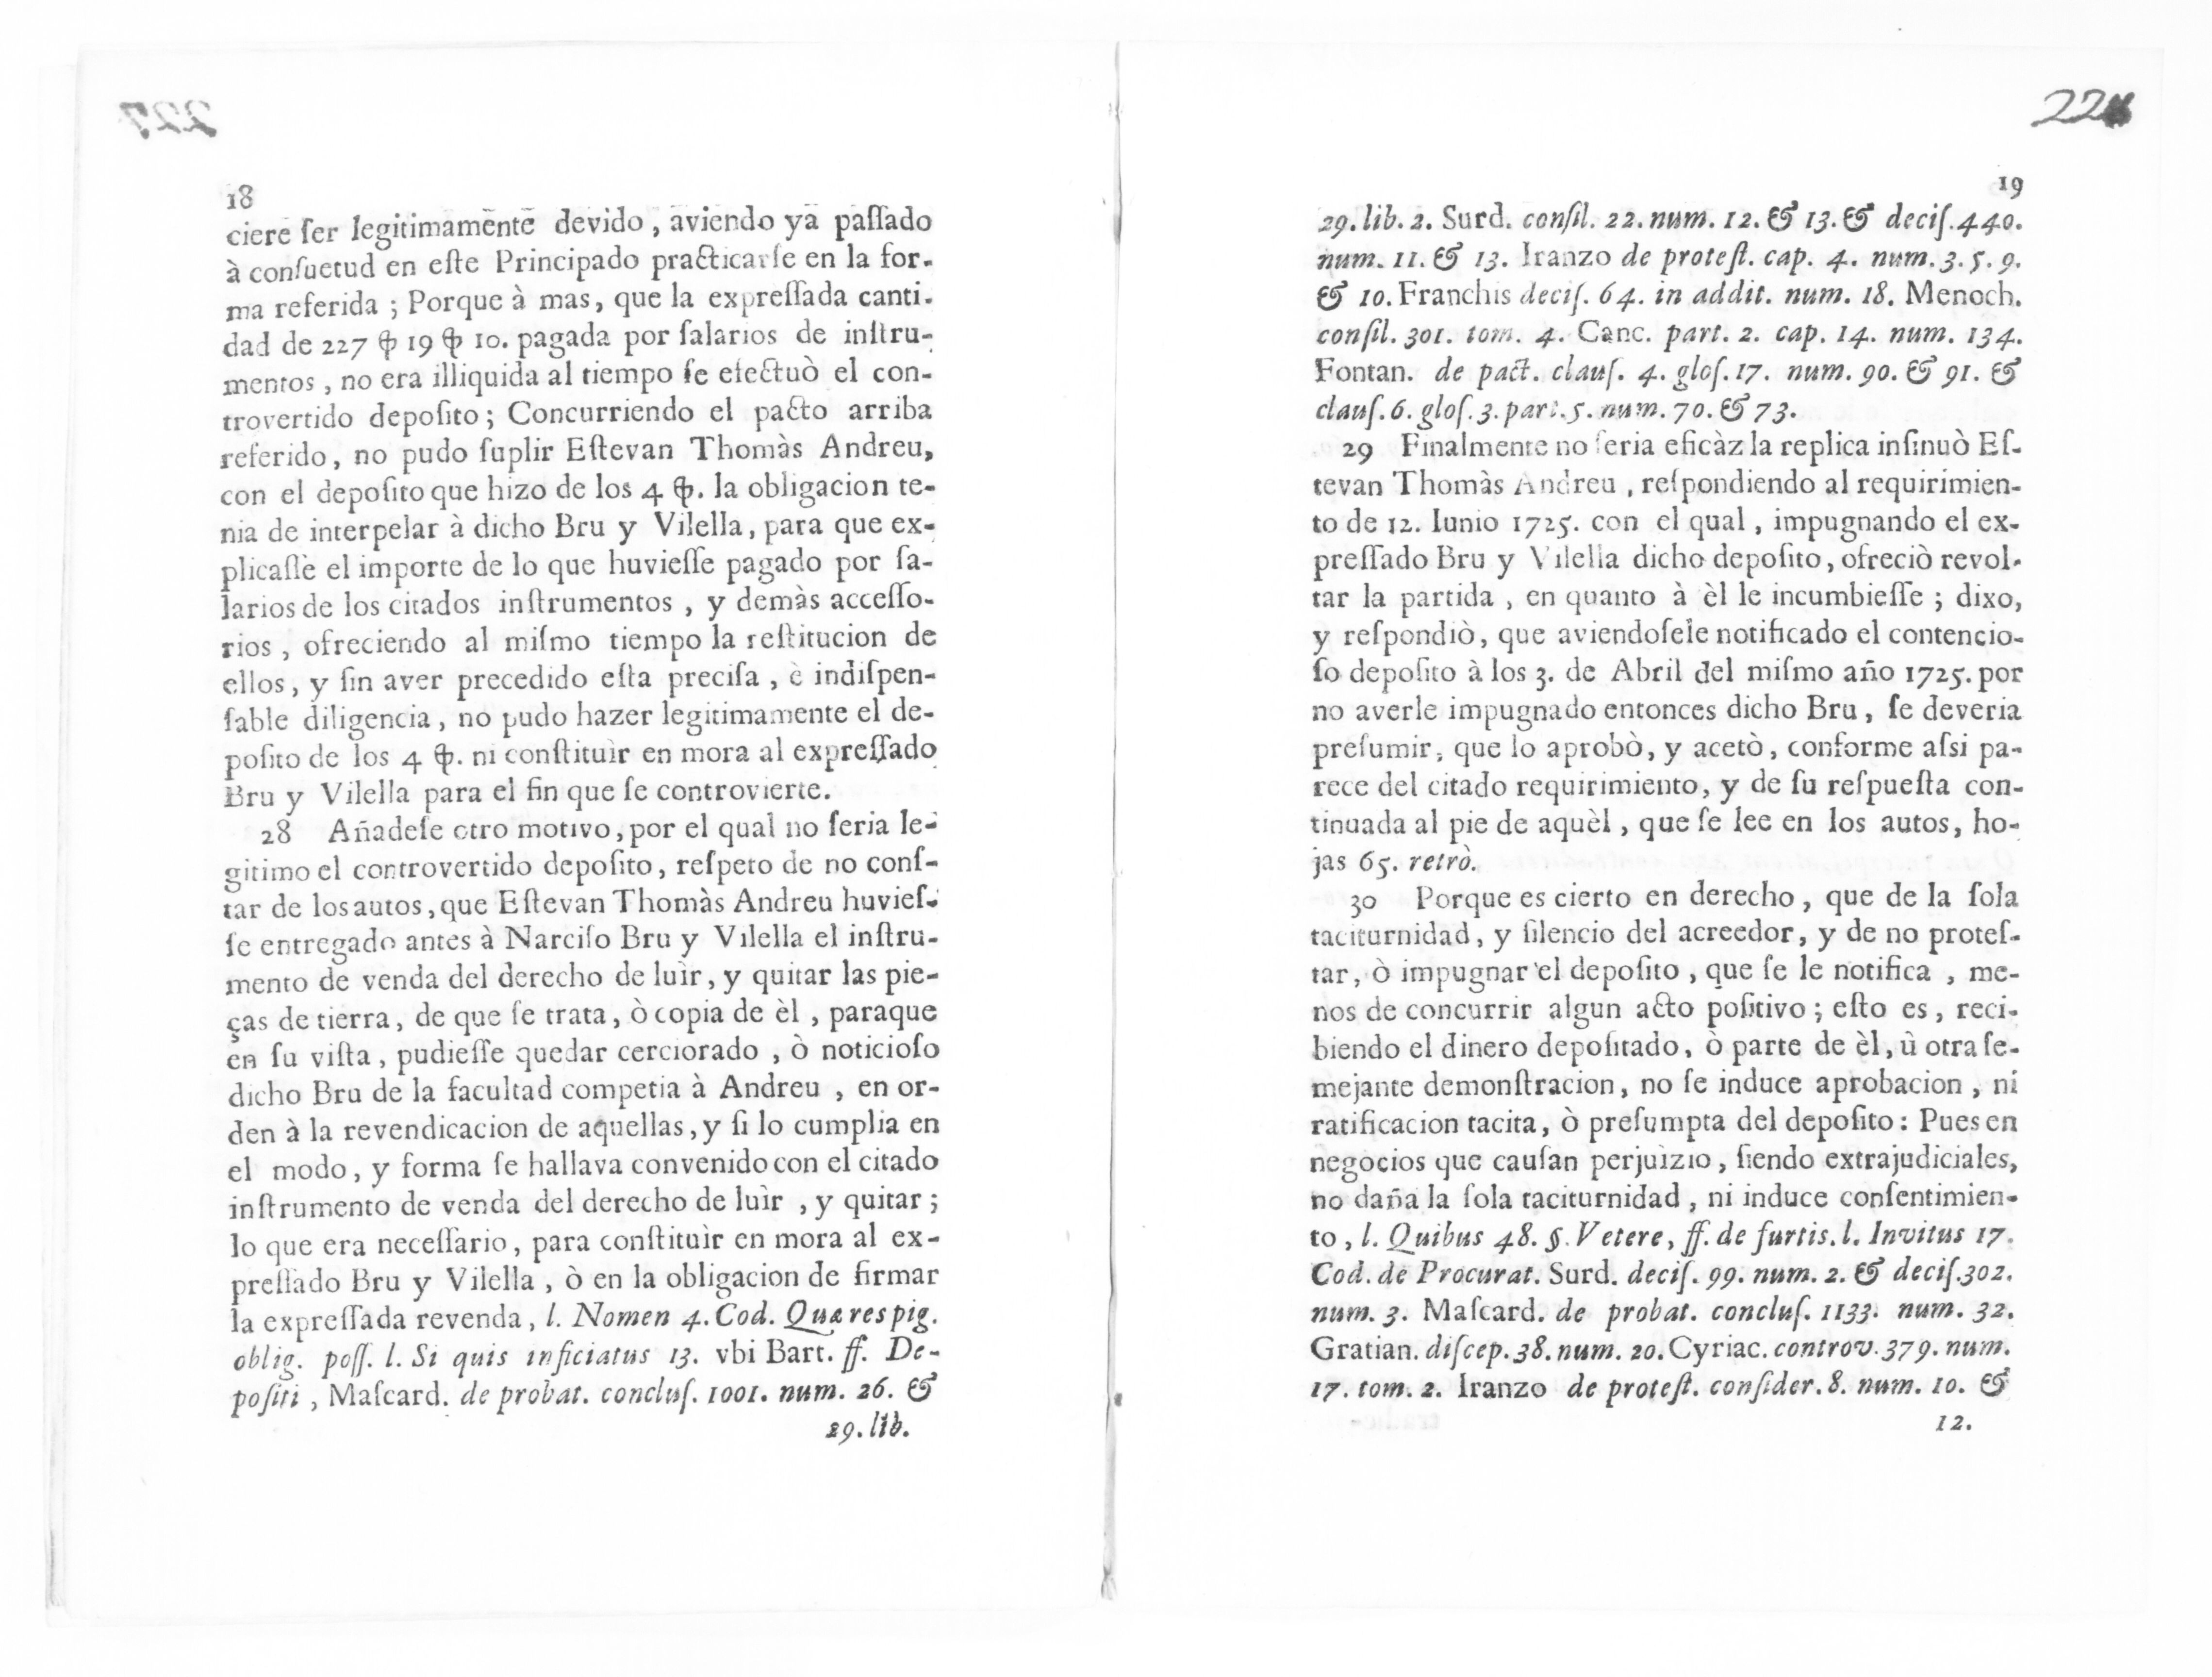 227
18
ciere ſer legitimamente devido, aviendo ya paſſado
à conſuetud en eſte Principado practicarſe en la for-
ma referida; Porque à mas, que la expreſſada canti-
dad de 227 ꝑ 19 ꝑ 10. pagada por ſalarios de inſtru-
mentos, no era illiquida al tiempo ſe efectuò el con-
trovertido depoſito; Concurriendo el pacto arriba
referido, no pudo ſuplir Eſtevan Thomàs Andreu,
con el depoſito que hizo de los 4 ꝑ. la obligacion te-
nia de interpelar à dicho Bru y Vilella, para que ex-
plicaſſe el importe de lo que huvieſſe pagado por ſa-
larios de los citados inſtrumentos, y demàs acceſſo-
rios, ofreciendo al miſmo tiempo la reſtitucion de
ellos, y ſin aver precedido eſta preciſa, è indiſpen-
ſable diligencia, no pudo hazer legitimamente el de-
poſito de los 4 ꝑ. ni conſtituìr en mora al expreſſado
Bru y Vilella para el fin que ſe controvierte.
28 Añadeſe otro motivo, por el qual no ſeria le-
gitimo el controvertido depoſito, reſpeto de no conſ-
tar de los autos, que Eſtevan Thomàs Andreu huvieſ-
ſe entregado antes à Narciſo Bru y Vilella el inſtru-
mento de venda del derecho de luìr, y quitar las pie-
ças de tierra, de que ſe trata, ò copia de èl, paraque
en ſu viſta, pudieſſe quedar cerciorado, ò noticioſo
dicho Bru de la facultad competia à Andreu, en or-
den à la revendicacion de aquellas, y ſi lo cumplia en
el modo, y forma ſe hallava convenido con el citado
inſtrumento de venda del derecho de luìr, y quitar;
lo que era neceſſario, para conſtituìr en mora al ex-
preſſado Bru y Vilella, ò en la obligacion de firmar
la expreſſada revenda, l. Nomen 4. Cod. Quæ res pig.
oblig. poſſ. l. Si quis inficiatus 13. vbi Bart. ff. De-
poſiti, Maſcard. de probat. concluſ. 1001. num. 26. &
29. lib.
19
29. lib. 2. Surd. conſil. 22. num. 12. & 13. & deciſ. 440.
num. 11. & 13. Iranzo de proteſt. cap. 4. num. 3. 5. 9.
& 10. Franchis deciſ. 64. in addit. num. 18. Menoch.
conſil. 301. tom. 4. Canc. part. 2. cap. 14. num. 134.
Fontan. de pact. clauſ. 4. gloſ. 17. num. 90. & 91. &
clauſ. 6. gloſ. 3. part. 5. num. 70. & 73.
29 Finalmente no ſeria eficàz la replica inſinuò Eſ-
tevan Thomàs Andreu, reſpondiendo al requirimien-
to de 12. Iunio 1725. con el qual, impugnando el ex-
preſſado Bru y Vilella dicho depoſito, ofreciò revol-
tar la partida, en quanto à èl le incumbieſſe; dixo,
y reſpondiò, que aviendoſele notificado el contencio-
ſo depoſito à los 3. de Abril del miſmo año 1725. por
no averle impugnado entonces dicho Bru, ſe deveria
preſumir, que lo aprobò, y acetò, conforme aſsi pa-
rece del citado requirimiento, y de ſu reſpueſta con-
tinuada al pie de aquèl, que ſe lee en los autos, ho-
jas 65. retrò.
30 Porque es cierto en derecho, que de la ſola
taciturnidad, y ſilencio del acreedor, y de no proteſ-
tar, ò impugnar el depoſito, que ſe le notifica, me-
nos de concurrir algun acto poſitivo; eſto es, reci-
biendo el dinero depoſitado, ò parte de èl, ù otra ſe-
mejante demonſtracion, no ſe induce aprobacion, ni
ratificacion tacita, ò preſumpta del depoſito: Pues en
negocios que cauſan perjuìzio, ſiendo extrajudiciales,
no daña la ſola taciturnidad, ni induce conſentimien-
to, l. Quibus 48. §. Vetere, ff. de furtis. l. Invitus 17.
Cod. de Procurat. Surd. deciſ. 99. num. 2. & deciſ. 302.
num. 3. Maſcard. de probat. concluſ. 1133. num. 32.
Gratian. diſcep. 38. num. 20. Cyriac. controv. 379. num.
17. tom. 2. Iranzo de proteſt. conſider. 8. num. 10. &
12.